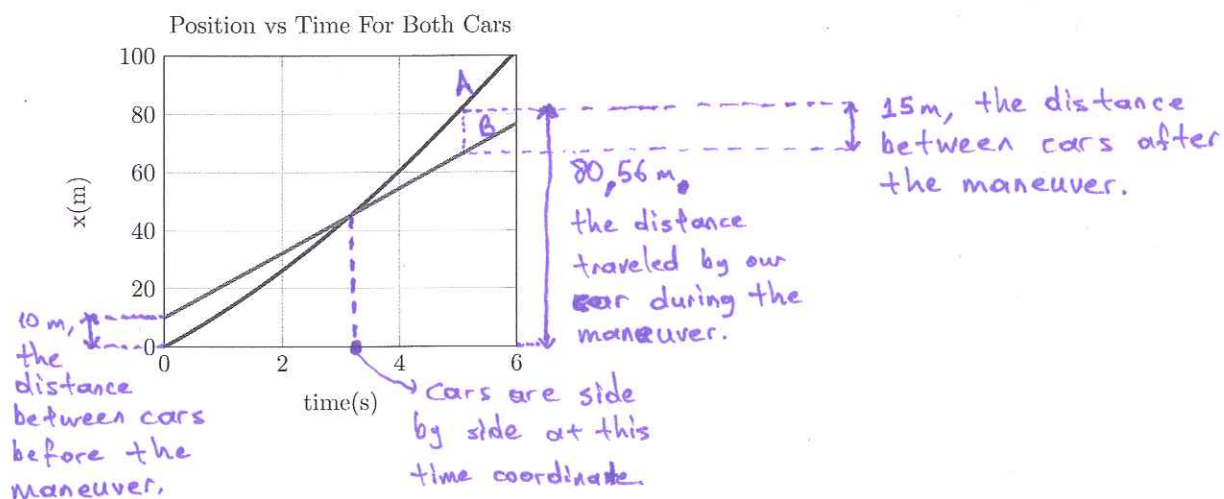 Position vs Time For Both Cars
100
80
60
40
20
0
x(m)
0
2
4
6
time(s)
A
B
15m, the distance
between cars after
the maneuver.
80,56 m,
the distance
traveled by our
car during the
maneuver.
10 m,
the
distance
between cars
before the
maneuver.
Cars are side
by side at this
time coordinate.